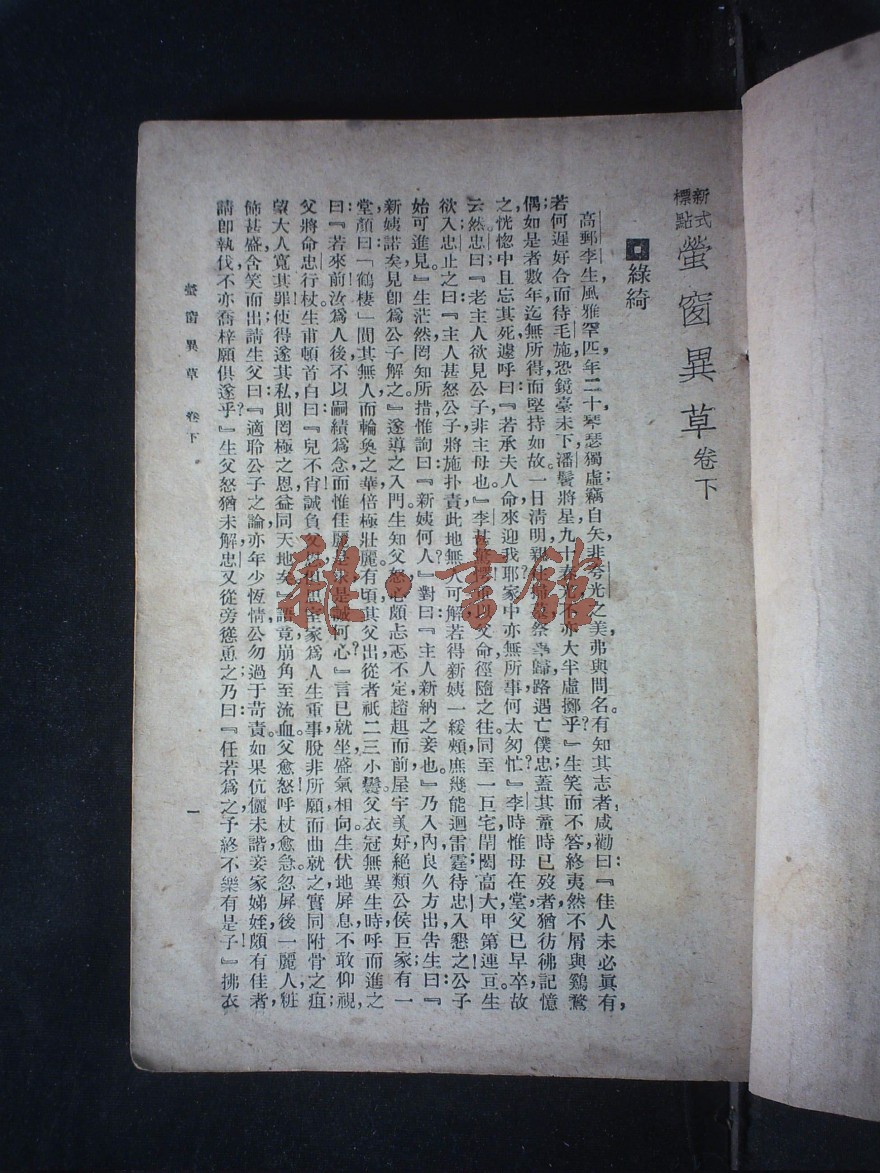 新式標點 螢窗異草 卷下
綠綺
高郵李生，風雅罕匹，年二十，琴瑟獨虛，竊自矢非 光之美，弗與問名。有知其志者，咸勸曰：『佳人未必眞有，
若何遲好合而待毛施，恐鏡臺未下，潘鬢將星，九十春光，不亦大半虛擲乎？』生笑而不答，終夷然不屑與鷄鶩
偶。如是者數年，迄無所得，而堅持如故。一日清明，親 祭畢，歸路遇亡僕忠，蓋其童時已歿者，猶彷彿記憶
之，恍惚中且忘其死，遽呼曰：『若承夫人命來迎我耶？家中亦無所事，何太匆忙？』李時惟母在堂，父已早卒，故
云然。忠曰：『老主人欲見公子，非主母也。』李甚 以父命，徑隨之往。同至一巨宅，閈閎高大，甲第連亘。生
欲入，忠止之曰：『主人甚怒公子，將施扑責，此地無人可解，若得新姨一緩頰，庶幾能迴雷霆，待忠入懇之，公子
始可進見。』生茫然罔知所措，惟詢曰：『新姨何人？』對曰：『主人新納之妾也。』乃入內，良久方出，告生曰：『
新姨諾矣，見卽爲公子解之。』遂導之入門。生知父怒，心頗忐忑不定，趦趄而前，屋宇美好，絕類公侯巨家，有一
堂顏曰：「鶴棲」闃其無人，而輪奐之華，倍極壯麗。有頃，其父出，從者祇二三小鬟，父衣冠無異生時，呼而進之
曰：『若來前！汝爲人後，不以嗣績爲念，而惟佳麗是求，是誠何心？』言已就坐，盛氣相向。生伏地屏息，不敢仰視，
父將命忠行杖，生甫頓首白曰：『兒不肖，誠負父 室家爲人生重事，脫非所願而曲就之，實同附骨之疽；
望大人寬其罪，使得遂其私，則罔極之恩，益同天地矣！』語竟，崩角至流血。父愈怒，呼杖愈急。忽屏後一麗人，粧
飾甚盛，含笑而出，請生父曰：『適聆公子之論，亦年少恆情，公勿過于苛責。如果伉儷未諧，妾家娣姪，頗有佳者，
請卽執伐，不亦喬梓願俱遂乎？』生父怒猶未解，忠又從旁慫恿之，乃曰：『任若爲之，予終不樂有是子！』拂衣
螢窗異草 卷下
一
雜·書館